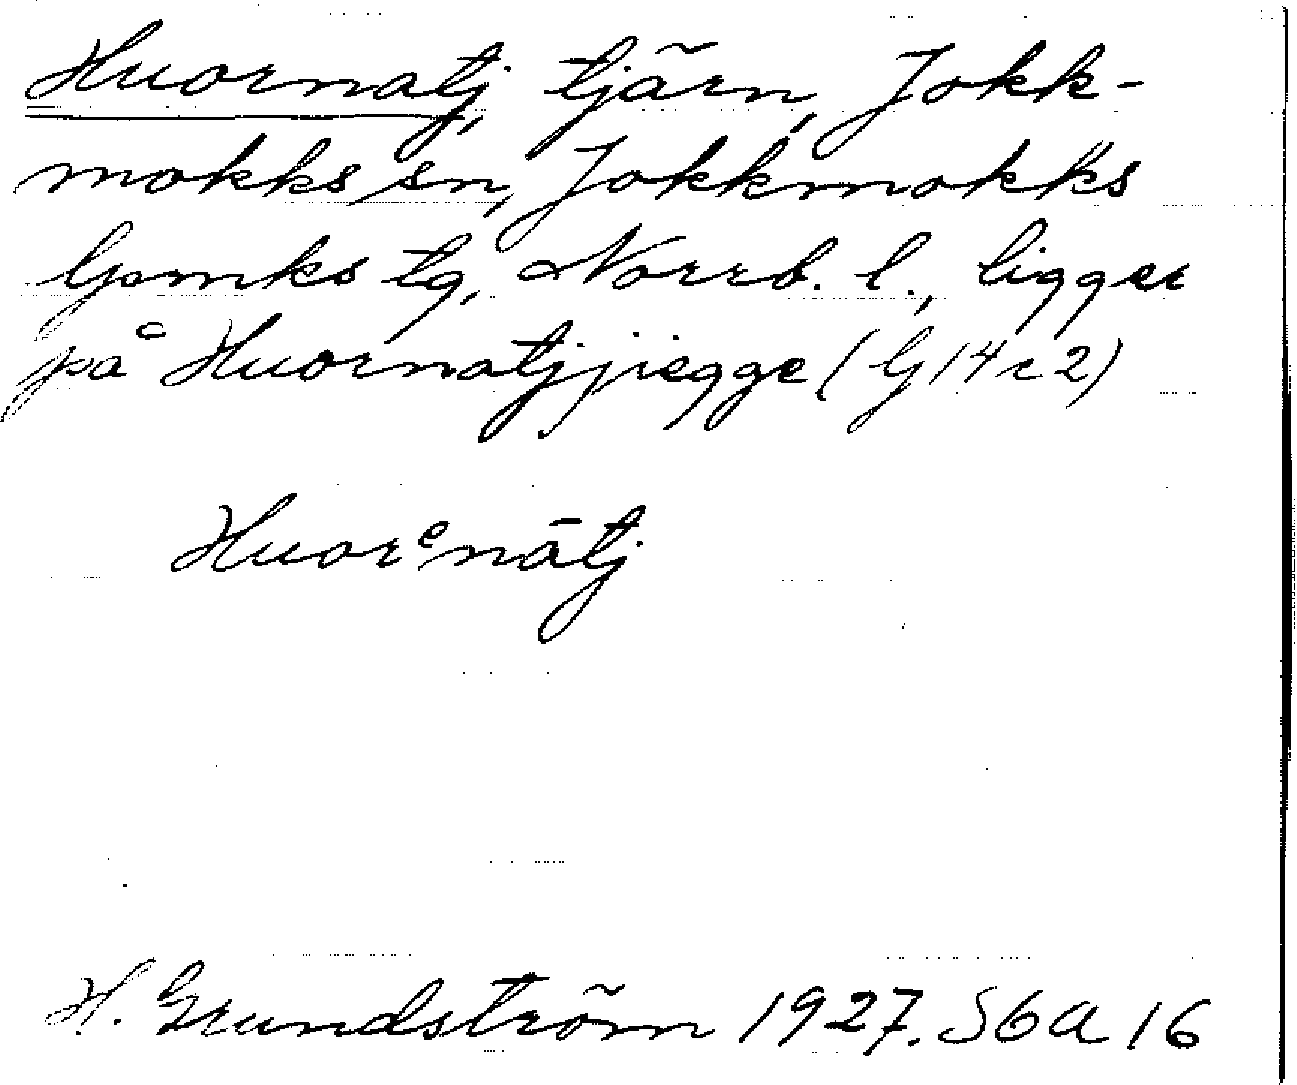 Huornatj, tjärn, Jokk-
mokks sn, Jokkmokks
lpmks tg, Norrb. l., ligger
på Huornatjjiegge (lj 14 c 2)
Huorᵉnātj
H. Grundström 1927. S6a 16